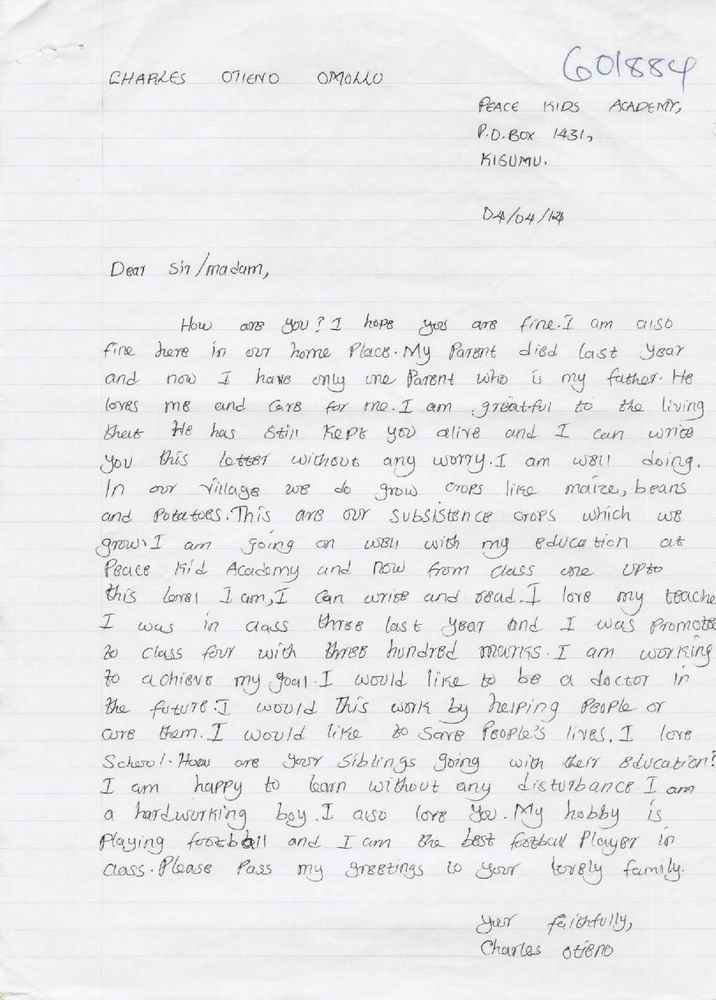 CHARLES OTIENO OMOLLO
601884
PEACE KIDS ACADEMY,
P.O.BOX 1431,
KISUMU.
04/04/14
Dear Sir/madam,
How are you? I hope you are fine. I am also
fine here in our home Place. My Parent died last year
and now I have only one Parent who is my father. He
loves me and care for me. I am greatful to the living
that He has still kept you alive and I can write
you this letter without any worry. I am well doing.
In our village we do grow crops like maize, beans
and Potatoes. This are our subsistence crops which we
grow. I am going on well with my education at
Peace Kid Academy and now from class one upto
this level I am, I can write and read. I love my teache
I was in class three last year and I was Promote
to class four with three hundred marks. I am working
to achieve my goal. I would like to be a doctor in
the future. I would This work by helping People or
cure them. I would like to save People's lives. I love
School. How are your siblings going with their education?
I am happy to learn without any disturbance I am
a hardworking boy. I also love you. My hobby is
Playing football and I am the best football Player in
class. Please Pass my greetings to your lovely family.
your faithfully,
Charles Otieno